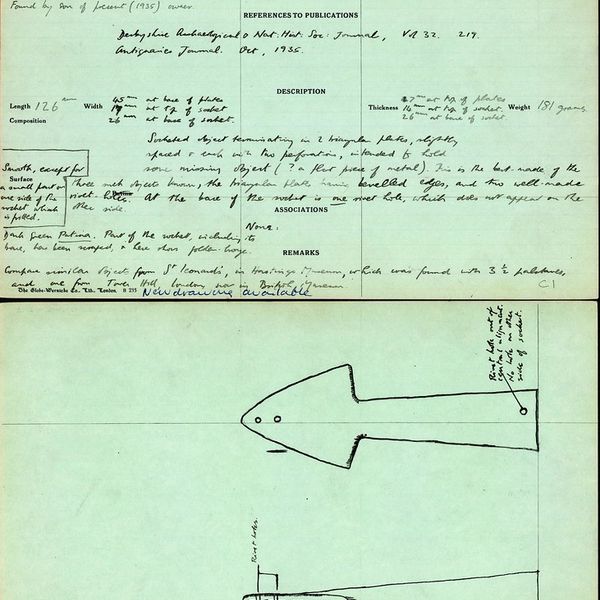 Found by son of present (1935) owner.
REFERENCES TO PUBLICATIONS
Derbyshire Archaeological & Nat: Hist: Soc: Journal, Vol 32. 219.
Antiquaries Journal. Oct, 1935.
DESCRIPTION
Length 126 mm Width 45 mm at base of plates Thickness 17 mm at top of plates Weight 181 grams.
19 mm at top of socket 16 mm at top of socket.
Composition 26 mm at base of socket. 26 mm at base of socket.
Socketed object terminating in 2 triangular plates, slightly
spaced & each with two perforations, intended to hold
some missing object (? a flat piece of metal). This is the best made of the
three such objects known, the triangular plates having bevelled edges, and two well-made
rivet-holes. At the base of the socket is one rivet hole, which does not appear on the
other side.
Smooth, except for
Surface
a small part on
one side of the
socket which
is pitted.
ASSOCIATIONS
None.
Dark Green Patina. Part of the socket, including its
base, has been scraped, & here shows golden-bronze.
REMARKS
Compare similar object from St Leonards, in Hastings Museum, which was found with 3 ½ palstaves,
and one from Tower Hill, London, now in Bristol Museum.
C1
The Globe-Wernicke Co., Ltd., London. B 235
New drawing available
Rivet hole out of
central alignment.
No hole on other
side of socket.
Rivet holes.